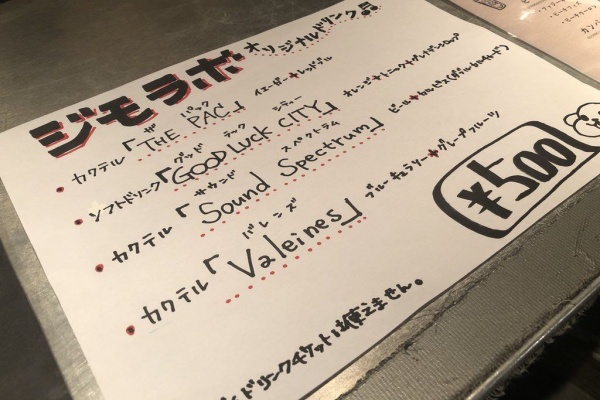 ジモラボ オリジナルドリンク♫
ザ パック
・カクテル「THE PAC」 イエーガー+レッドブル
グッド ラック シティー
・ソフトドリンク「GOOD LUCK CITY」 オレンジ+トニック+グレナデンシロップ
サウンド スペクトラム
・カクテル「Sound Spectrum」 ビール+カルピス
バレンズ
・カクテル「Valeines」 ブルーキュラソー+グレープフルーツ
¥500
ドリンクチケットは使えません。